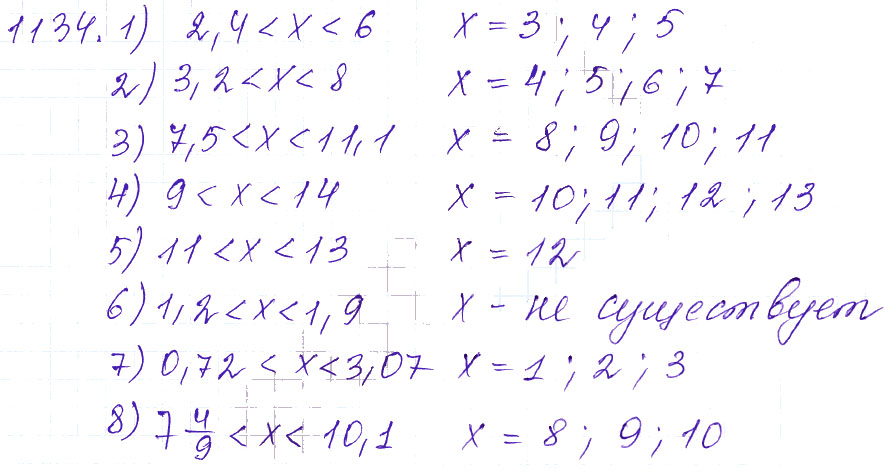 1134. 1) 2,4 < x < 6 x = 3; 4; 5
2) 3,2 < x < 8 x = 4; 5; 6; 7
3) 7,5 < x < 11,1 x = 8; 9; 10; 11
4) 9 < x < 14 x = 10; 11; 12; 13
5) 11 < x < 13 x = 12
6) 1,2 < x < 1,9 x - не существует
7) 0,72 < x < 3,07 x = 1; 2; 3
8) 7 4/9 < x < 10,1 x = 8; 9; 10